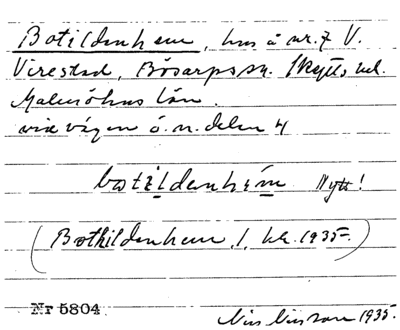 Botildenhem, hus å nr. 7 V.
Virestad, Bösarps sn. Skytts hd.
Malmöhus län.
vid vägen ö. n. delen 4
botildenhem Nytt!
(Bothildenhem, 1, kk. 1935)
Nr 5804
Nils Nilsson 1935.